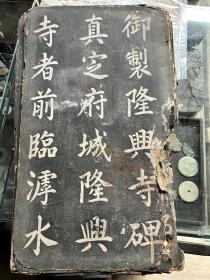 御製隆興寺碑
真定府城隆興
寺者前臨滹水